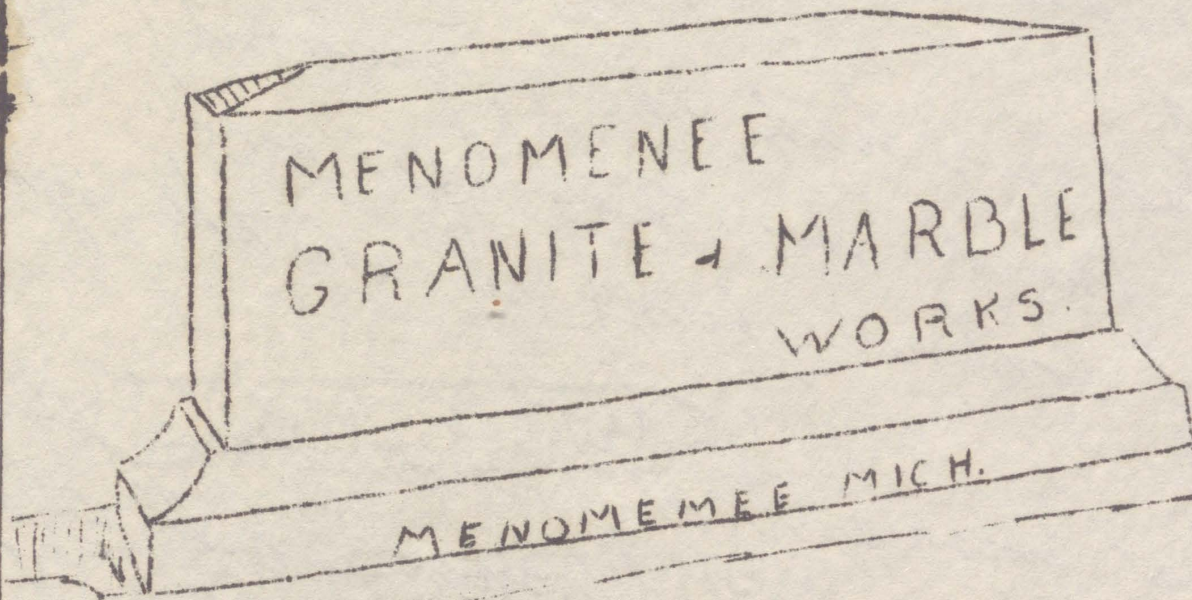 MENOMENEE
GRANITE & MARBLE
WORKS.
MENOMEMEE MICH.